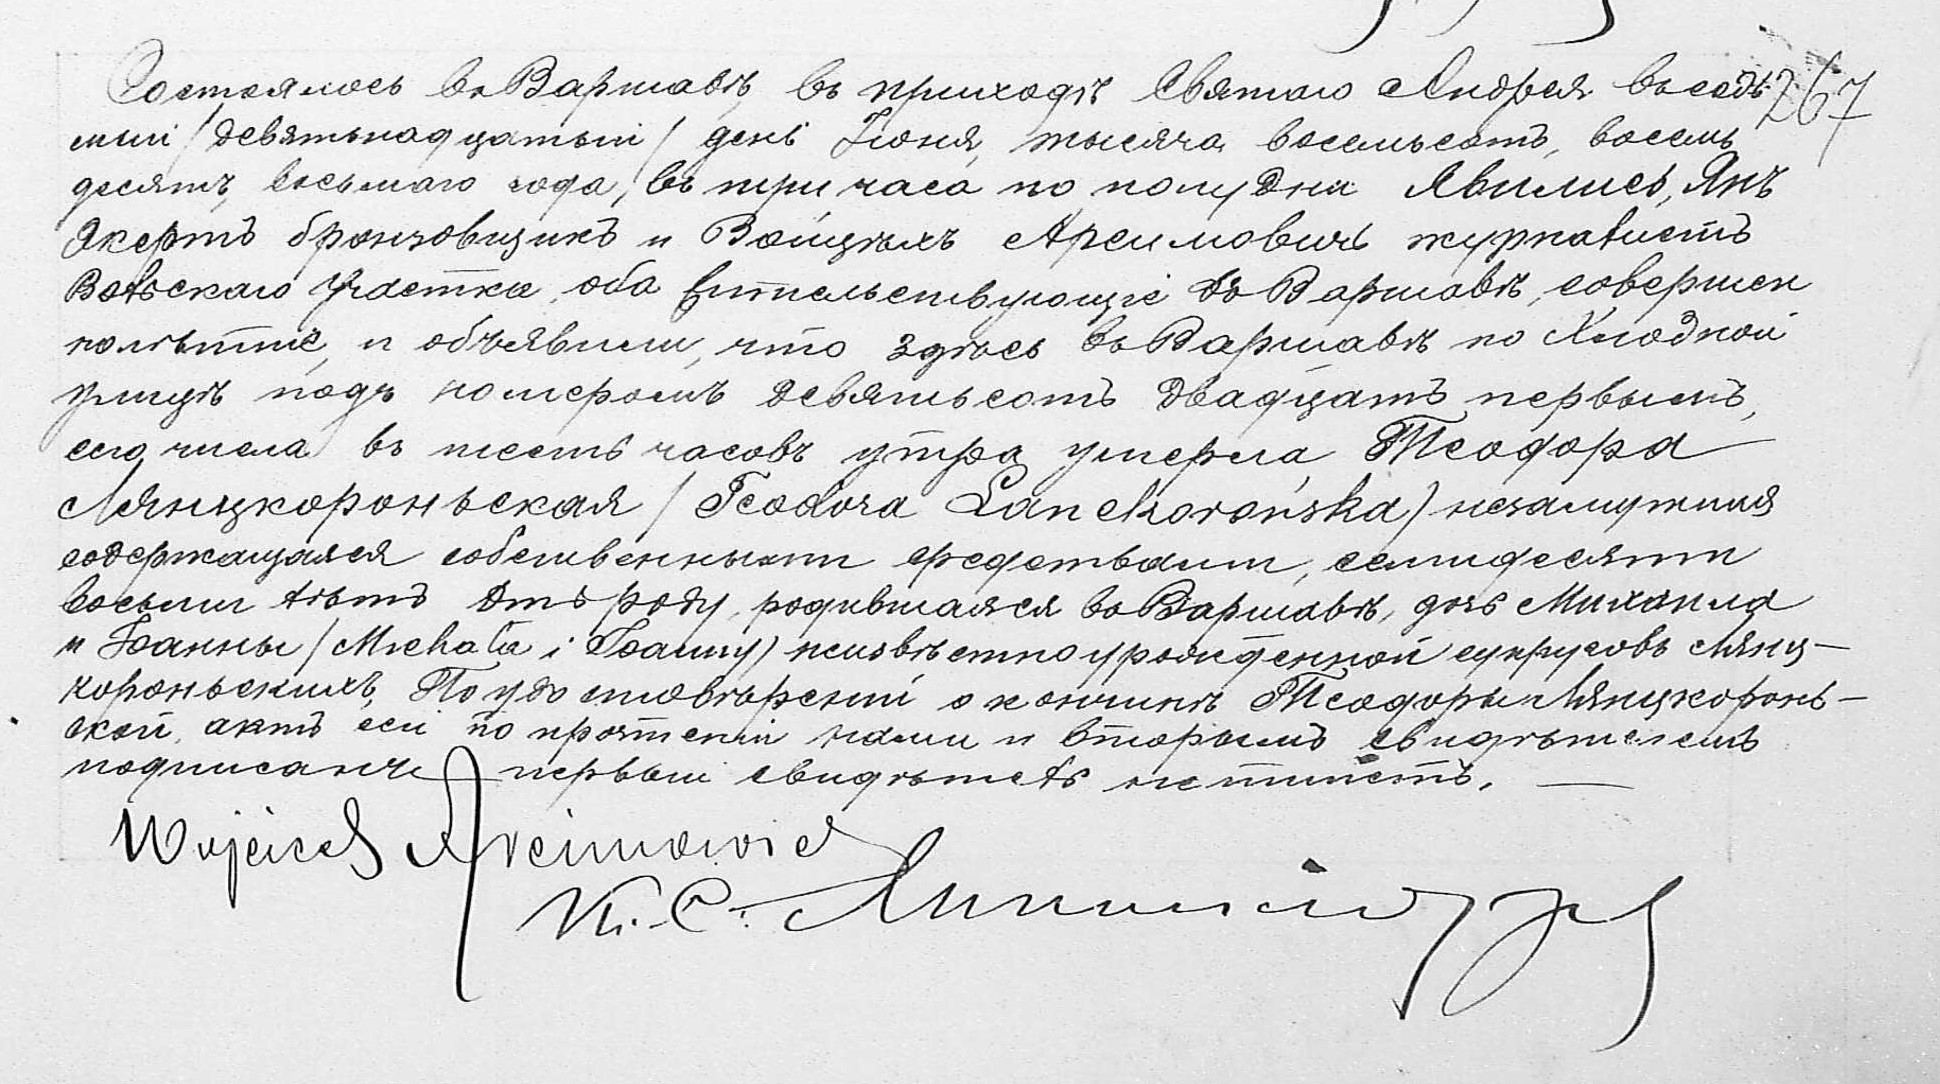 Состоялось въ Варшавѣ, въ приходѣ Святаго Андрея въ седь 267
мый /девятьнадцатый/ день Іюня, тысяча восемьсотъ, восемь
десятъ, восьмаго года, въ три часа по полудни Явились, Янъ
Якертъ бронзовщикъ и Войцѣхъ Арсимовичъ журналистъ
Вольскаго Участка, оба жительствующіе въ Варшавѣ, совершен
нолѣтніе, и объявили, что здѣсь въ Варшавѣ по Хлодной
улицѣ подъ номеромъ девятьсотъ двадцать первымъ,
сего числа въ шесть часовъ утра умерла Теодора
Лянцкороньская / Teodora Lanckorońska / незамужняя
содержащаяся собственными средствами, семидесяти
восьми лѣтъ отъ роду, родившаяся въ Варшавѣ, дочь Михаила
и Іоанны / Michała i Joanny / неизвѣстно урожденной супруговъ Лянц-
короньскихъ, По удостовѣреніи о кончинѣ Теодоры Лянцкоронь-
ской, актъ сей по прочтеніи нами и вторымъ свидѣтелемъ
подписанъ первый свидѣтель не пишетъ. —
Wojciech Arcimowicz